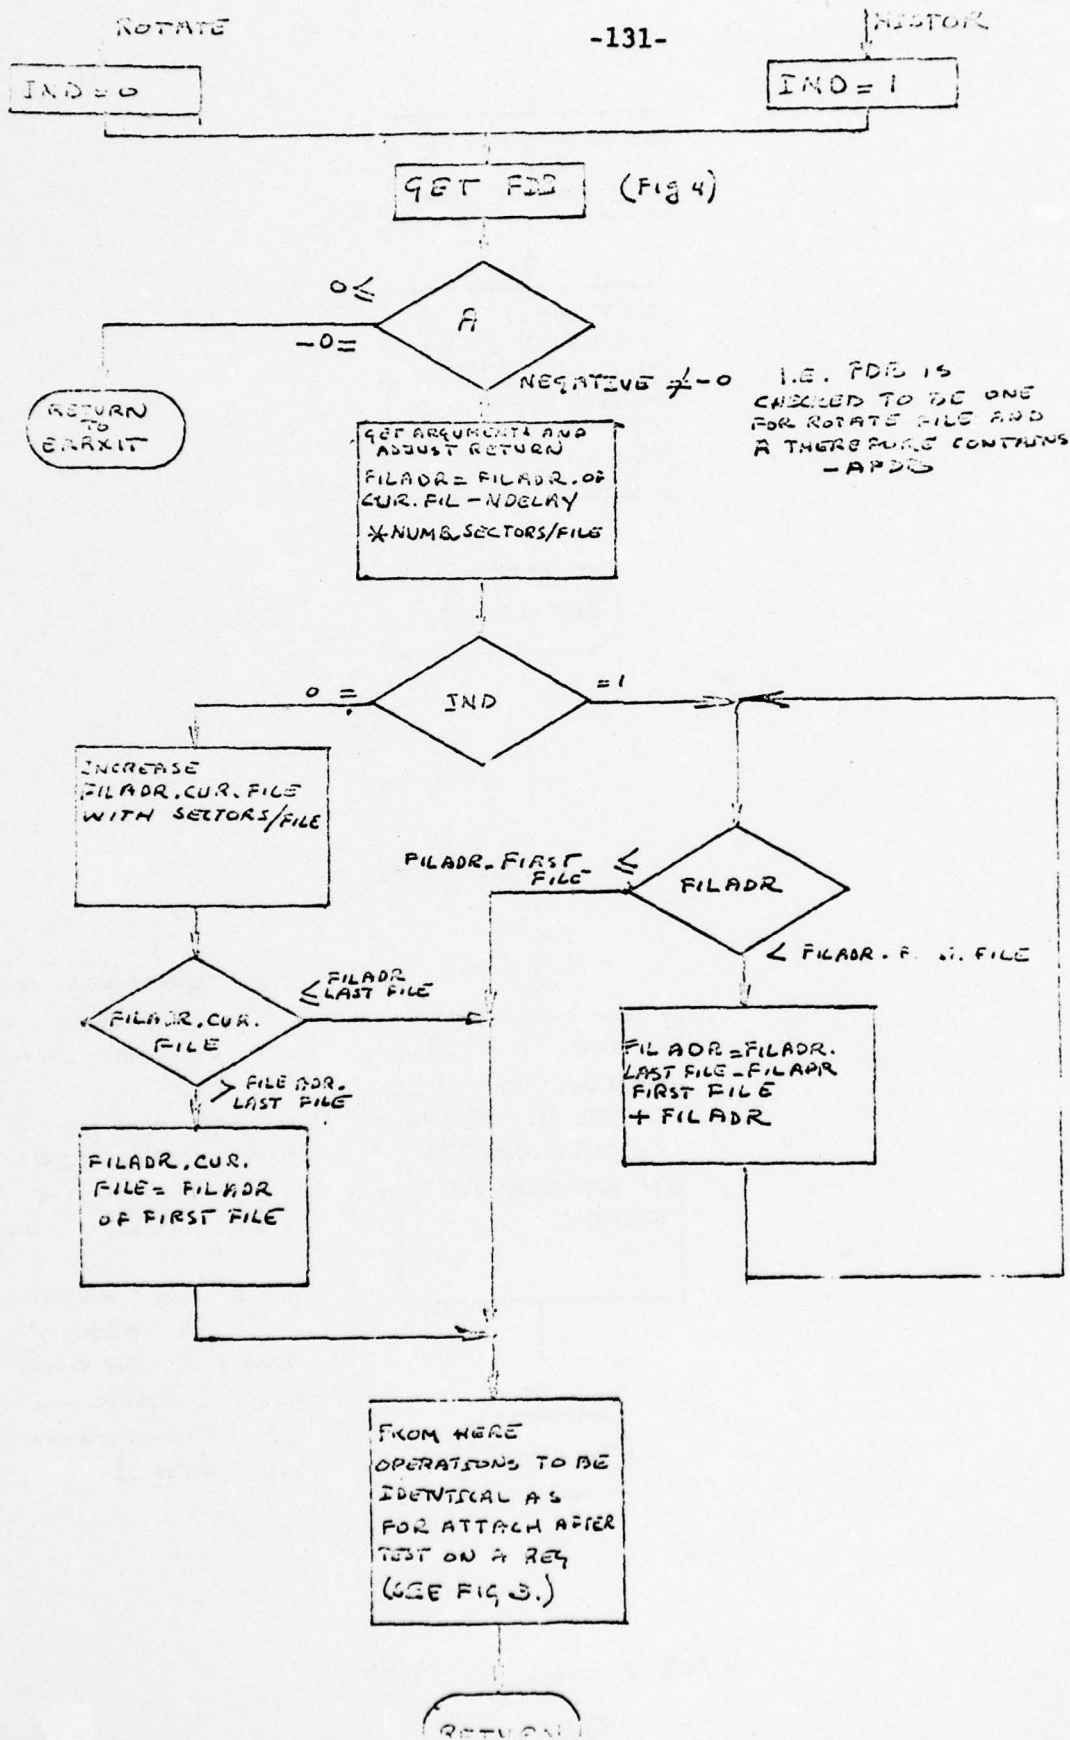 -131-
ROTATE
HISTOR
IND = 0
IND = 1
GET FDB
(Fig 4)
0 ≤
-0 =
A
NEGATIVE ≠ -0
I.E. FDB IS
CHECKED TO BE ONE
FOR ROTATE FILE AND
A THEREFORE CONTAINS
-AFDB
RETURN
TO
ERRXIT
GET ARGUMENTS AND
ADJUST RETURN
FILADR = FILADR. OF
CUR. FIL - NDELAY
* NUMB. SECTORS/FILE
0 =
IND
= 1
INCREASE
FILADR. CUR. FILE
WITH SECTORS/FILE
FILADR. FIRST ≤
FILE
FILADR
< FILADR. FILE
FILADR. CUR.
FILE
≤ FILADR
LAST FILE
> FILE ADR.
LAST FILE
FILADR = FILADR.
LAST FILE - FILADR
FIRST FILE
+ FILADR
FILADR. CUR.
FILE = FILADR
OF FIRST FILE
FROM HERE
OPERATIONS TO BE
IDENTICAL AS
FOR ATTACH AFTER
TEST ON A REG
(SEE FIG 3.)
RETURN